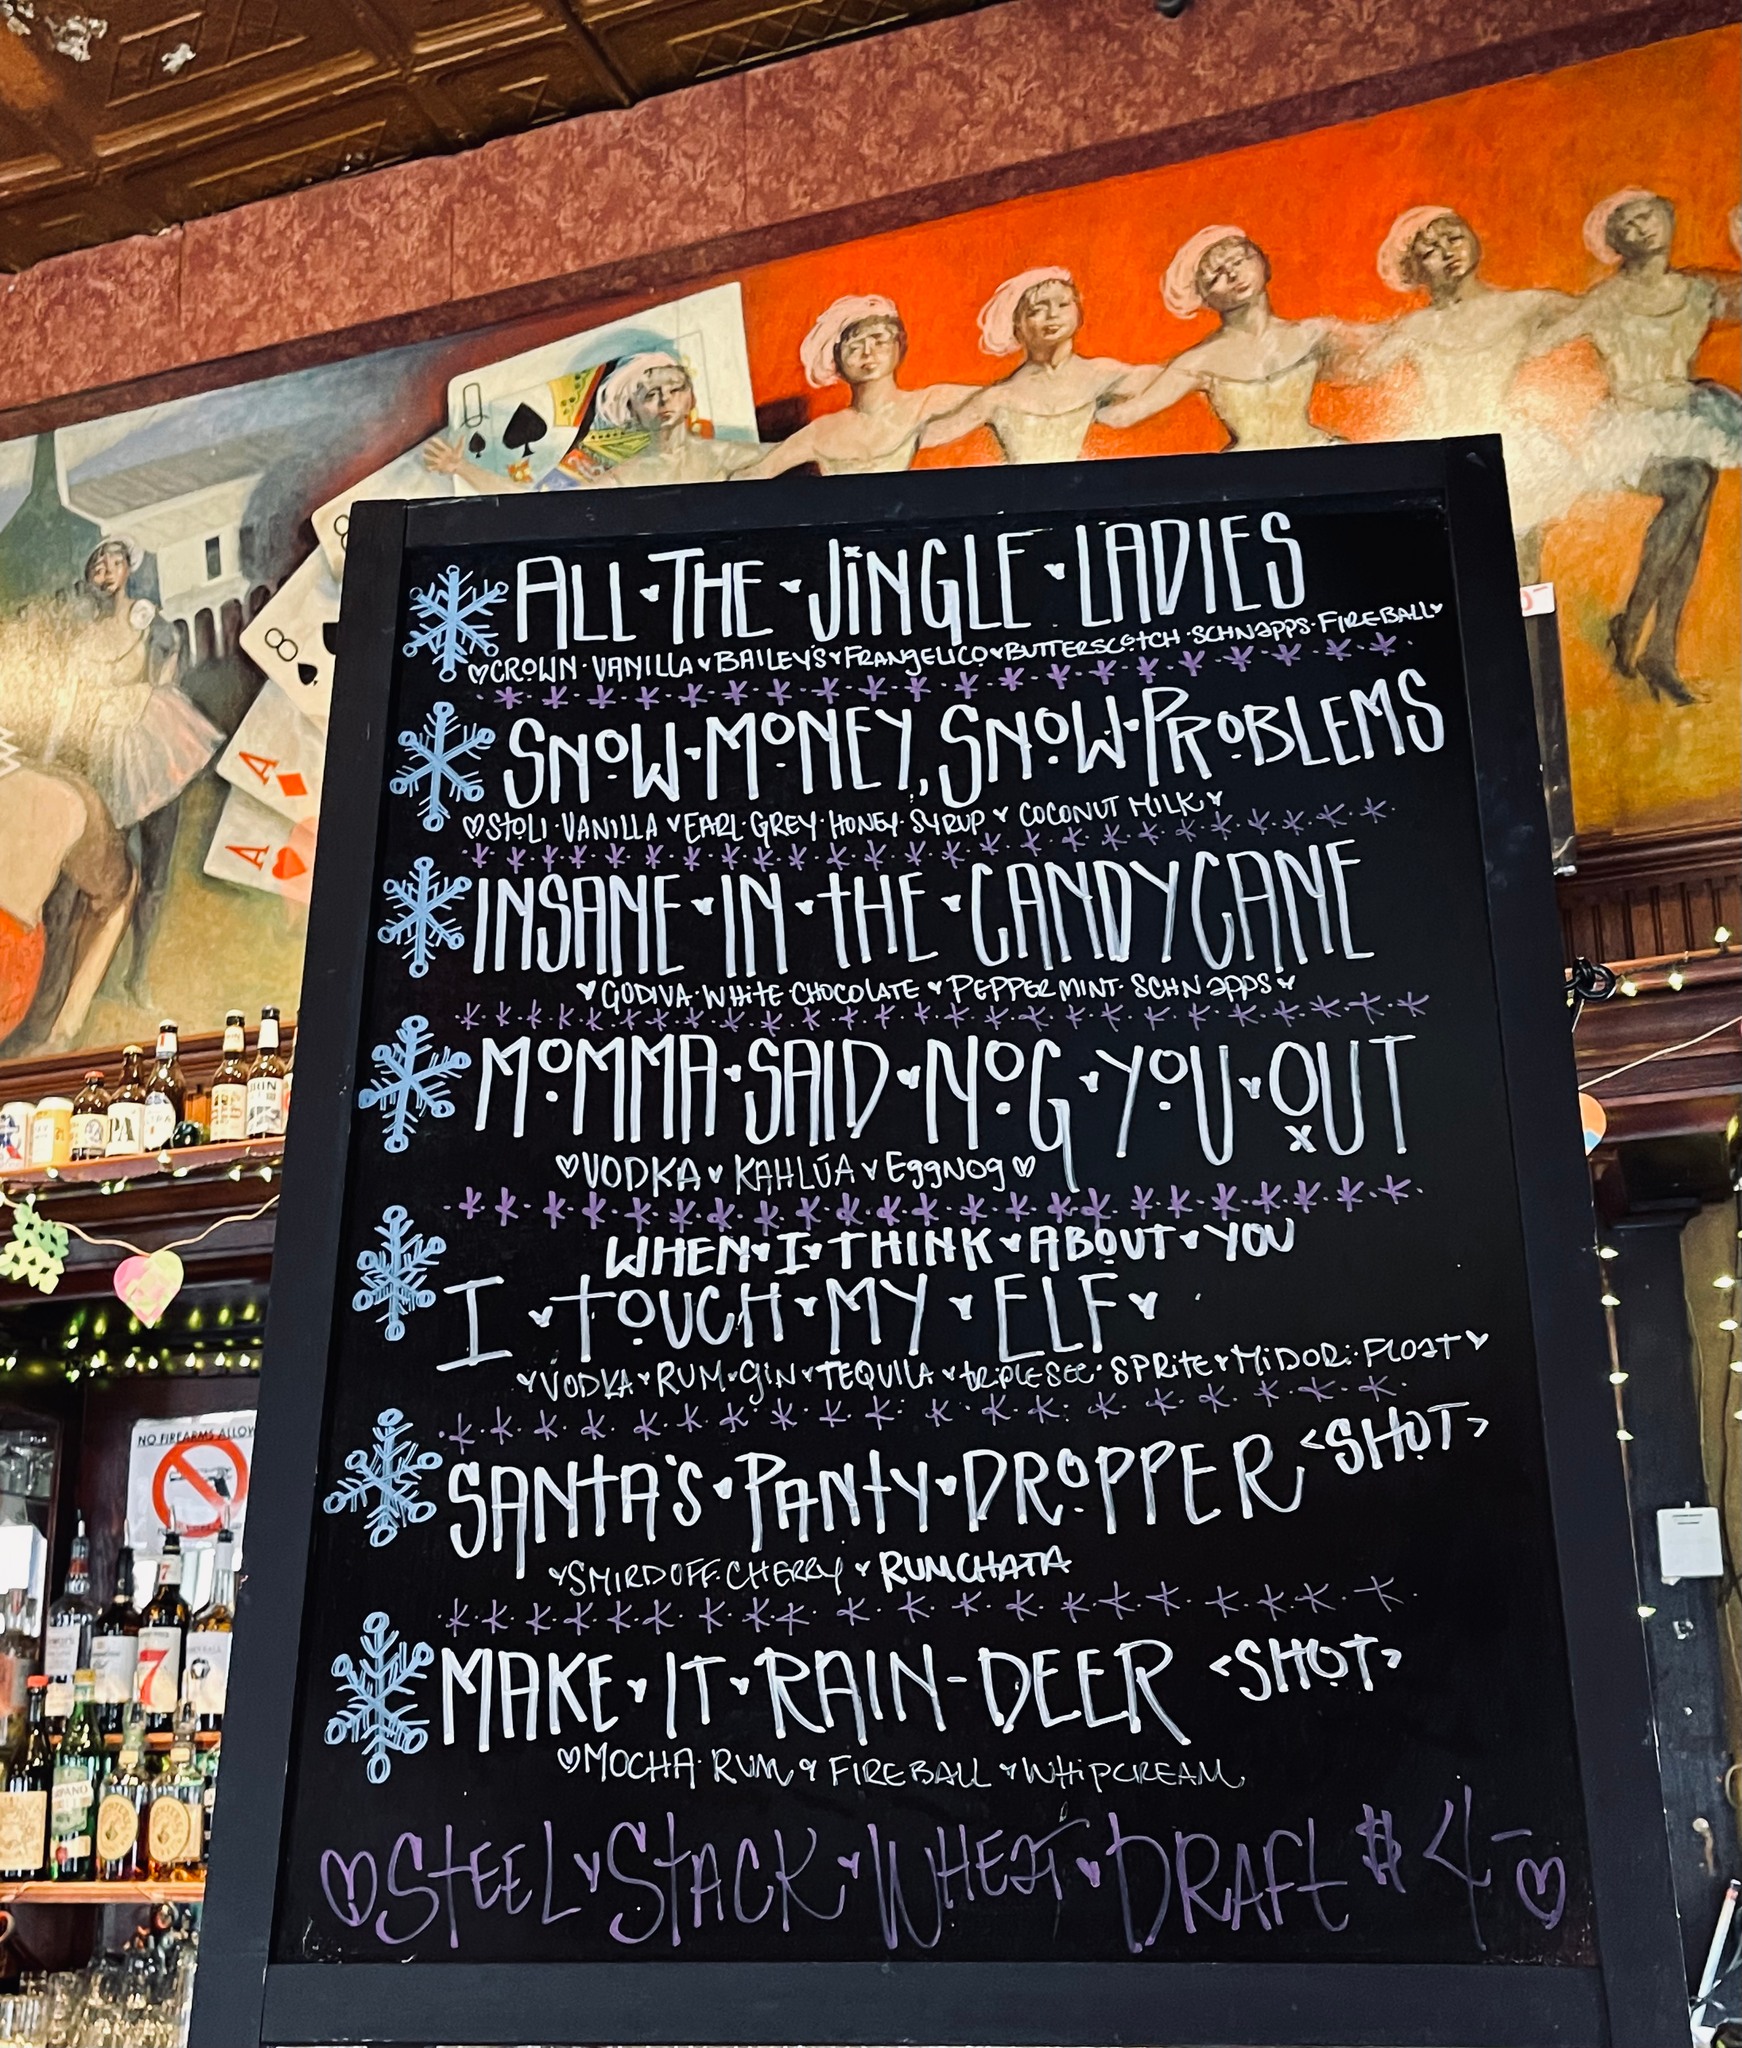 ALL THE JINGLE LADIES
CROWN VANILLA BAILEY'S FRANGELICO BUTTERSCOTCH SCHNAPPS FIREBALL
SNOW MONEY, SNOW PROBLEMS
STOLI VANILLA EARL GREY HONEY SYRUP COCONUT MILK
INSANE IN THE CANDYCANE
GODIVA WHITE CHOCOLATE PEPPERMINT SCHNAPPS
MOMMA SAID NOG YOU OUT
VODKA KAHLÚA EggNog
WHEN I THINK ABOUT YOU
I TOUCH MY ELF
VODKA RUM GIN TEQUILA TRIPLE SEC SPRITE MIDORI FLOAT
SANTA'S PANTY DROPPER <SHOT>
SMIRDOFF CHERRY RUMCHATA
MAKE IT RAIN-DEER <SHOT>
MOCHA RUM & FIREBALL WHIPCREAM
STEEL STACK WHEAT DRAFT $4-
Q
8
8
A
A
NO FIREARMS ALLOW
7
PA